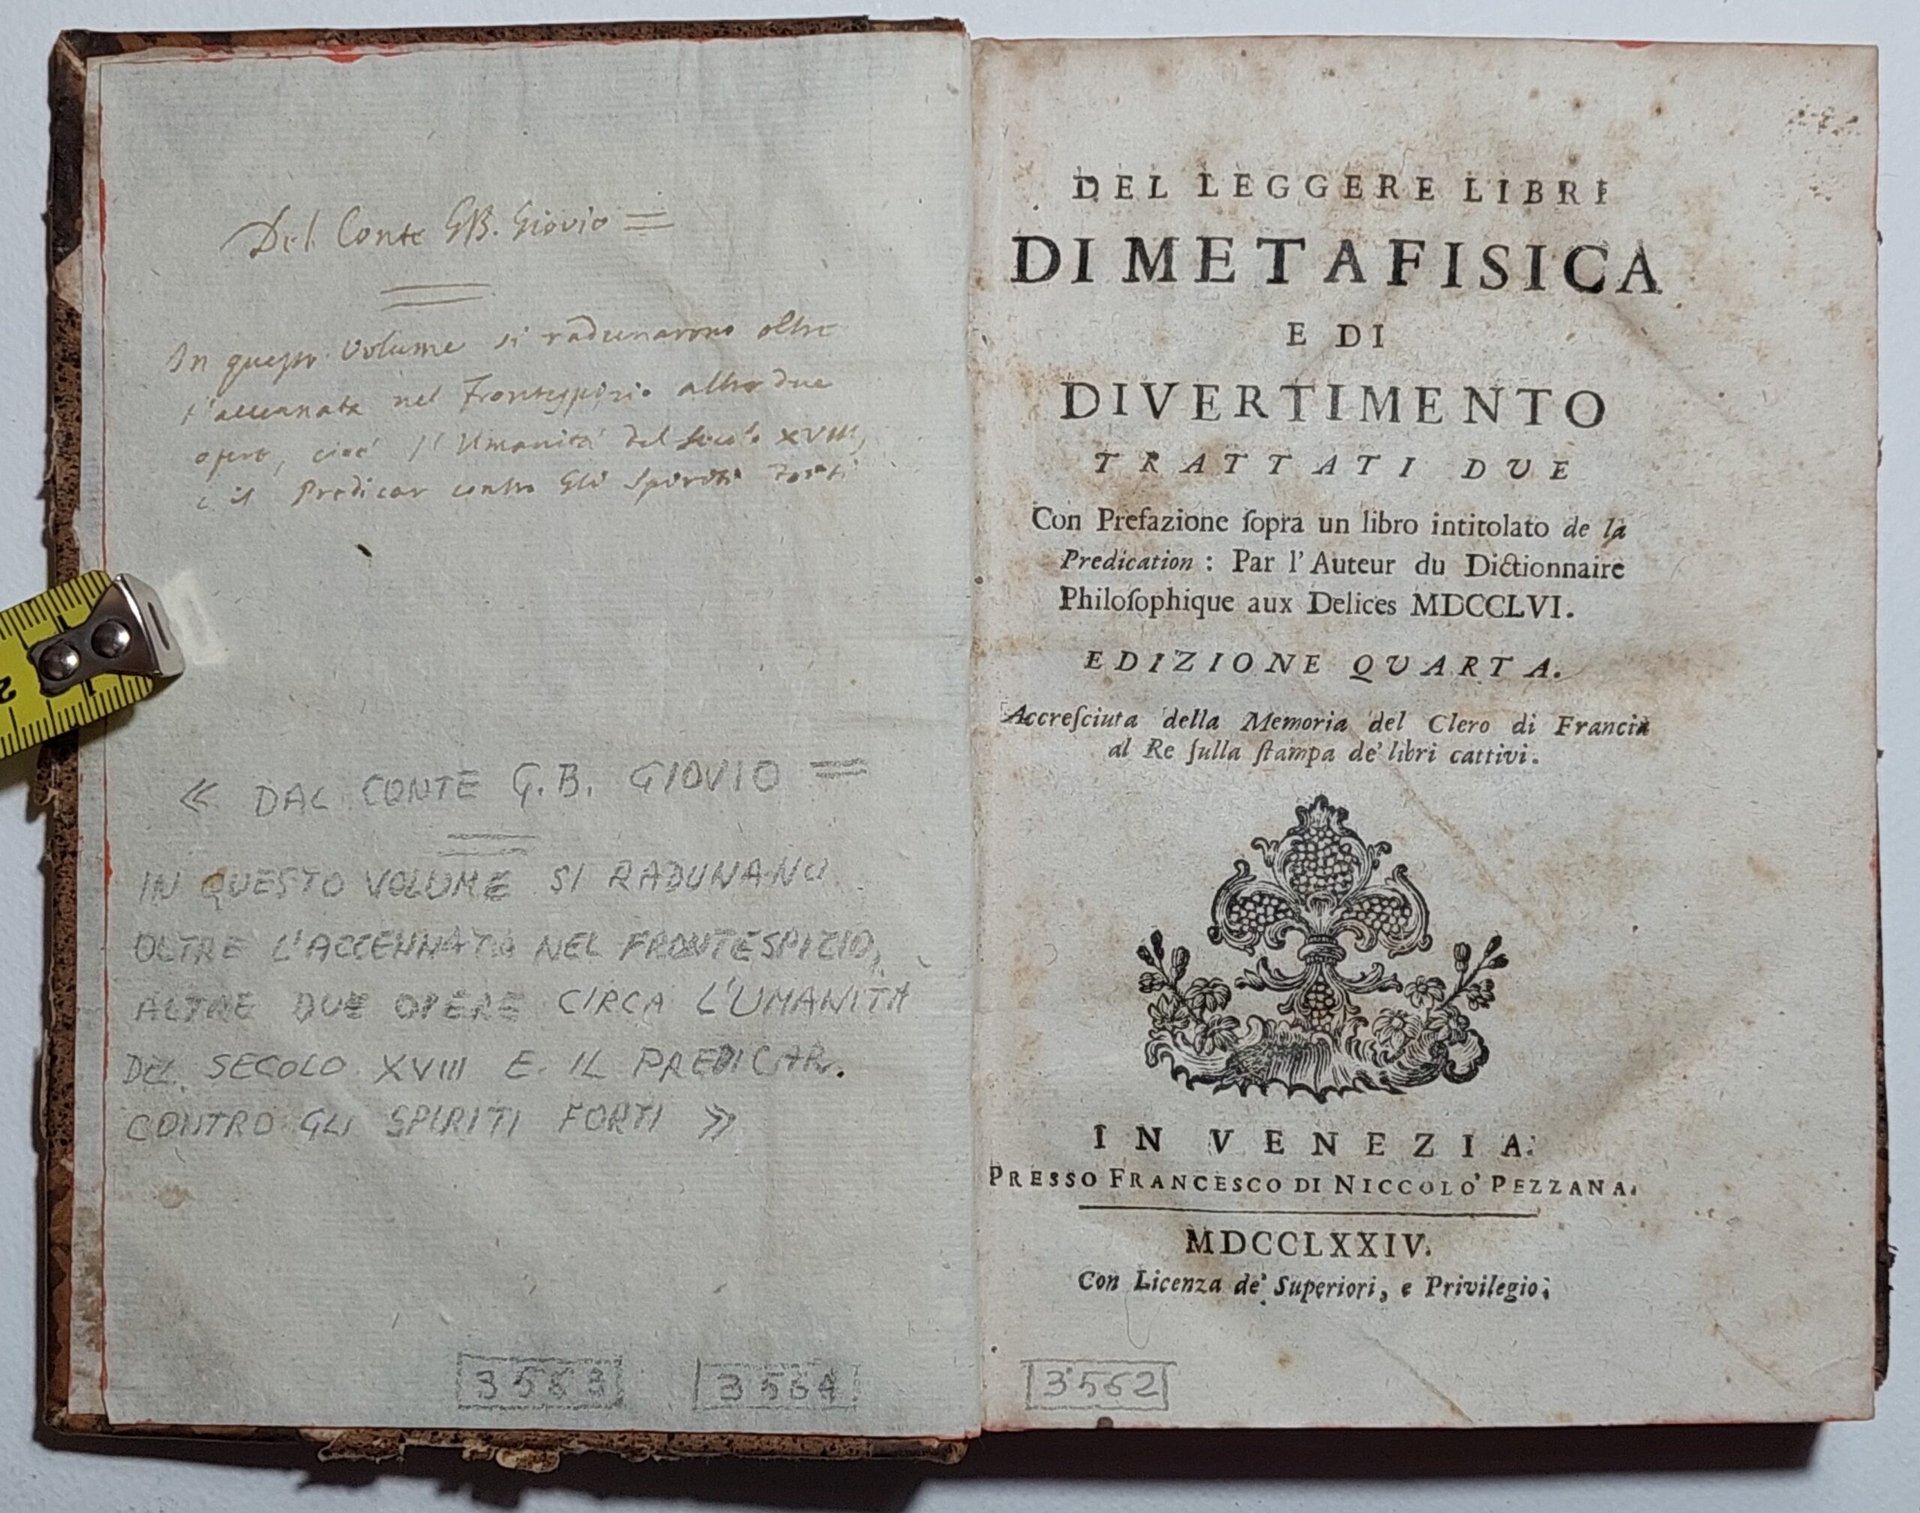 Del Conte GB. Giovio =
In questo Volume si radunarono oltre
l'accennata nel Frontespizio altre due
opere, cioè l'Umanità del secolo XVIII,
e il Predicar contro Gli Spiriti Forti
« DAL CONTE G.B. GIOVIO =
IN QUESTO VOLUME SI RADUNANO
OLTRE L'ACCENNATA NEL FRONTESPIZIO,
ALTRE DUE OPERE CIRCA L'UMANITÀ
DEL SECOLO XVIII E IL PREDICAR.
CONTRO GLI SPIRITI FORTI »
3563 3564
2 1
DEL LEGGERE LIBRI
DI METAFISICA
E DI
DIVERTIMENTO
TRATTATI DUE
Con Prefazione ſopra un libro intitolato de la
Predication : Par l'Auteur du Dictionnaire
Philoſophique aux Delices MDCCLVI.
EDIZIONE QUARTA.
Accreſciuta della Memoria del Clero di Francia
al Re ſulla ſtampa de' libri cattivi.
IN VENEZIA.
PRESSO FRANCESCO DI NICCOLO' PEZZANA.
MDCCLXXIV.
Con Licenza de' Superiori, e Privilegio.
3562